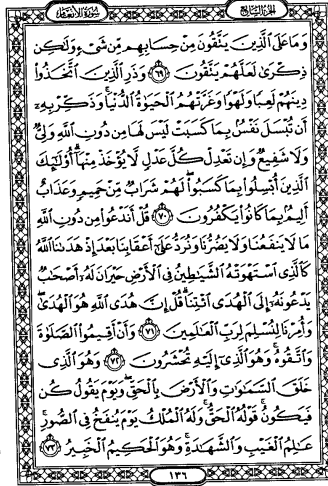 سورة الأنعام
الجزء السابع
وَمَا عَلَى ٱلَّذِينَ يَتَّقُونَ مِنْ حِسَابِهِم مِّن شَىْءٍ وَلَٰكِن
ذِكْرَىٰ لَعَلَّهُمْ يَتَّقُونَ ﴿٦٩﴾ وَذَرِ ٱلَّذِينَ ٱتَّخَذُوا۟
دِينَهُمْ لَعِبًا وَلَهْوًا وَغَرَّتْهُمُ ٱلْحَيَوٰةُ ٱلدُّنْيَا ۚ وَذَكِّرْ بِهِۦٓ
أَن تُبْسَلَ نَفْسٌۢ بِمَا كَسَبَتْ لَيْسَ لَهَا مِن دُونِ ٱللَّهِ وَلِىٌّ
وَلَا شَفِيعٌ وَإِن تَعْدِلْ كُلَّ عَدْلٍ لَّا يُؤْخَذْ مِنْهَآ ۗ أُو۟لَٰٓئِكَ
ٱلَّذِينَ أُبْسِلُوا۟ بِمَا كَسَبُوا۟ ۖ لَهُمْ شَرَابٌ مِّنْ حَمِيمٍ وَعَذَابٌ
أَلِيمٌۢ بِمَا كَانُوا۟ يَكْفُرُونَ ﴿٧٠﴾ قُلْ أَنَدْعُوا۟ مِن دُونِ ٱللَّهِ
مَا لَا يَنفَعُنَا وَلَا يَضُرُّنَا وَنُرَدُّ عَلَىٰٓ أَعْقَابِنَا بَعْدَ إِذْ هَدَىٰنَا ٱللَّهُ
كَٱلَّذِى ٱسْتَهْوَتْهُ ٱلشَّيَٰطِينُ فِى ٱلْأَرْضِ حَيْرَانَ لَهُۥٓ أَصْحَٰبٌ
يَدْعُونَهُۥٓ إِلَى ٱلْهُدَى ٱئْتِنَا ۗ قُلْ إِنَّ هُدَى ٱللَّهِ هُوَ ٱلْهُدَىٰ ۖ
وَأُمِرْنَا لِنُسْلِمَ لِرَبِّ ٱلْعَٰلَمِينَ ﴿٧١﴾ وَأَنْ أَقِيمُوا۟ ٱلصَّلَوٰةَ
وَٱتَّقُوهُ ۚ وَهُوَ ٱلَّذِىٓ إِلَيْهِ تُحْشَرُونَ ﴿٧٢﴾ وَهُوَ ٱلَّذِى
خَلَقَ ٱلسَّمَٰوَٰتِ وَٱلْأَرْضَ بِٱلْحَقِّ ۖ وَيَوْمَ يَقُولُ كُن
فَيَكُونُ ۚ قَوْلُهُ ٱلْحَقُّ ۚ وَلَهُ ٱلْمُلْكُ يَوْمَ يُنفَخُ فِى ٱلصُّورِ ۚ
عَٰلِمُ ٱلْغَيْبِ وَٱلشَّهَٰدَةِ ۚ وَهُوَ ٱلْحَكِيمُ ٱلْخَبِيرُ ﴿٧٣﴾
١٣٦